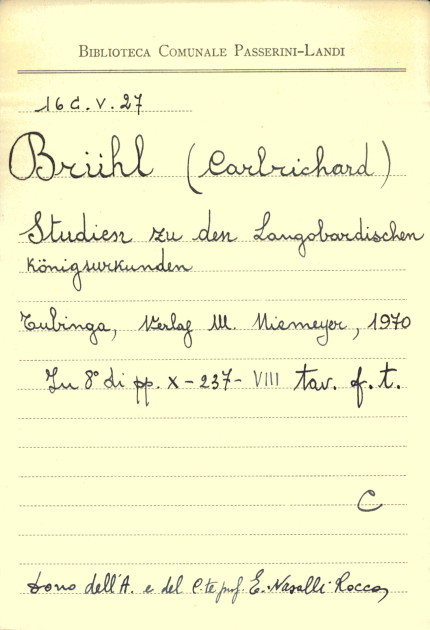 BIBLIOTECA COMUNALE PASSERINI-LANDI
16 C. V. 27
Brühl (Carlrichard)
Studien zu den Langobardischen
Königsurkunden
Tubinga, Verlag M. Niemeyer, 1970
In 8° di pp. X - 237 - VIII tav. f. t.
C
Dono dell'A. e del C.te prof. E. Nasalli Rocca